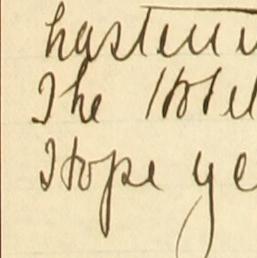 hasten
The Hotel
Hope ye